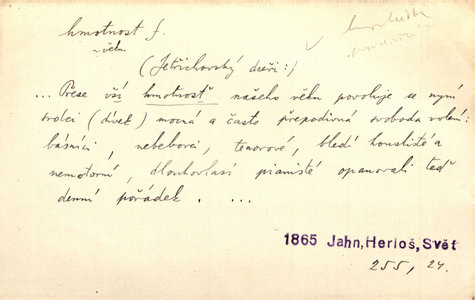 hmotnost f.
věku
(Jetřichovský dcéři:)
... Přese vší hmotnost našeho věku povoluje se nyní
srdci (dívek) mocná a často přepodivná svoboda volání:
básníci, nebeborci, tenorové, bledí houslisté a
nemotorní, dlouhovlasí pianisté opanovali teď
denní pořádek. ...
1865 Jahn, Herloš, Svět
255, 24.